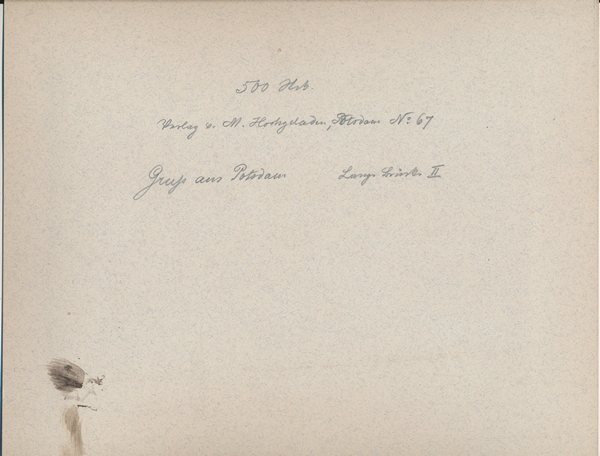 500
Verlag v. M. Hochgeladen, Potsdam No 67
Gruß aus Potsdam Lange Brücke II